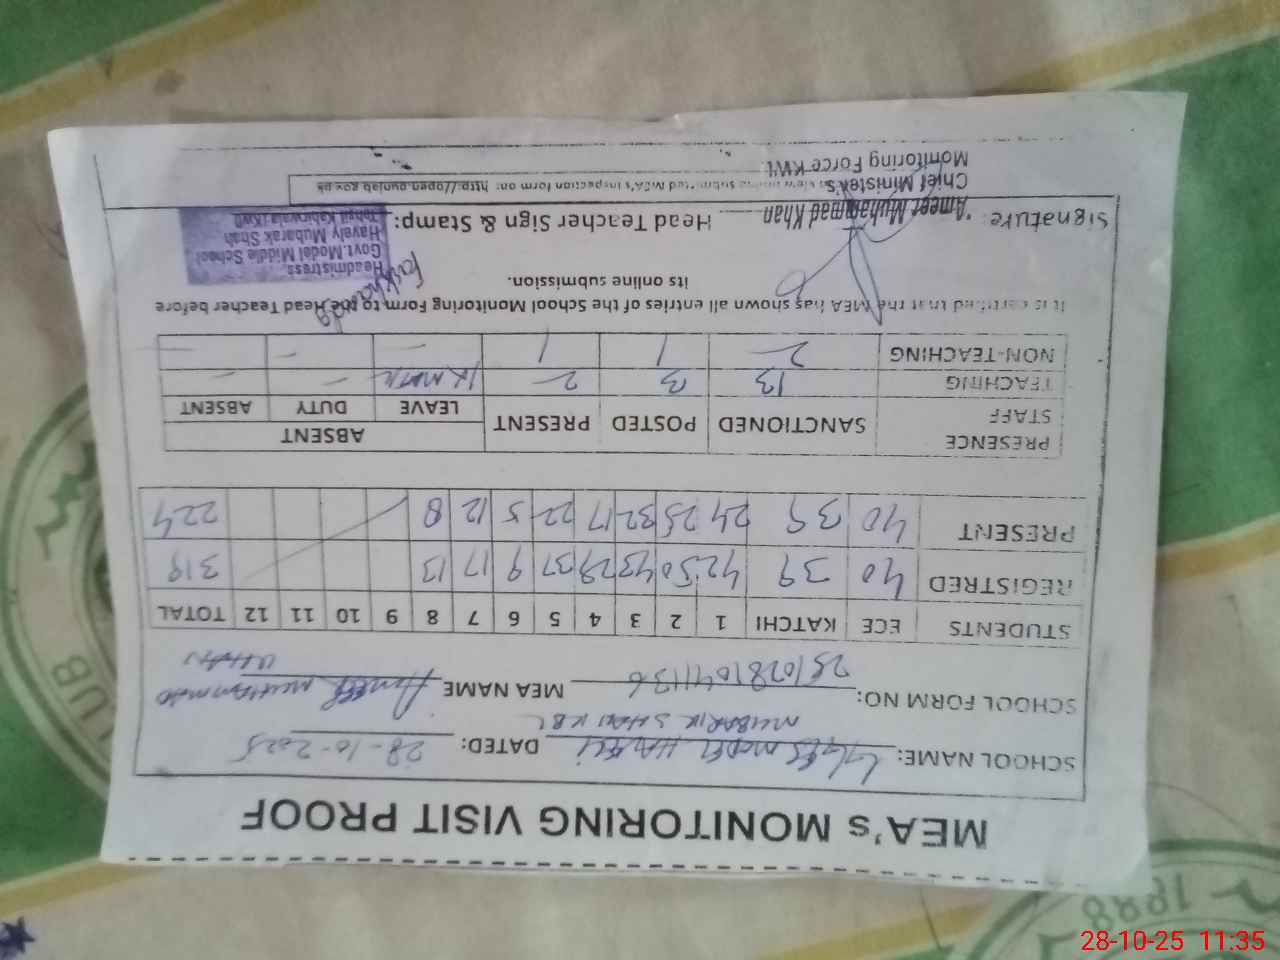 MEA's MONITORING VISIT PROOF
SCHOOL NAME: MODEL HAVELI DATED: 28-10-2025
MUBARIK SHAH KBL
SCHOOL FORM NO: 251028104136 MEA NAME Ameer MUHAMMAD
KHAN
STUDENTS ECE KATCHI 1 2 3 4 5 6 7 8 9 10 11 12 TOTAL
REGISTRED 40 39 42 50 43 29 37 9 17 13 319
PRESENT 40 39 24 25 32 17 22 5 12 8 224
PRESENCE STAFF SANCTIONED POSTED PRESENT ABSENT
LEAVE DUTY ABSENT
TEACHING 13 3 2 - -
NON-TEACHING 2 1 1 - - -
It is certified that the MEA has shown all entries of the School Monitoring Form to the Head Teacher before
its online submission.
Farkhanda
Signature: Ameer Muhammad Khan Head Teacher Sign & Stamp:
Chief Minister's
Monitoring Force KWL
Headmistress
Govt.Model Middle School
Havely Mubarak Shah
Tehsil Kabirwala (KWL)
view online submitted MEA's inspection form on: http://open.punjab.gov.pk
UB
1888
28-10-25 11:35